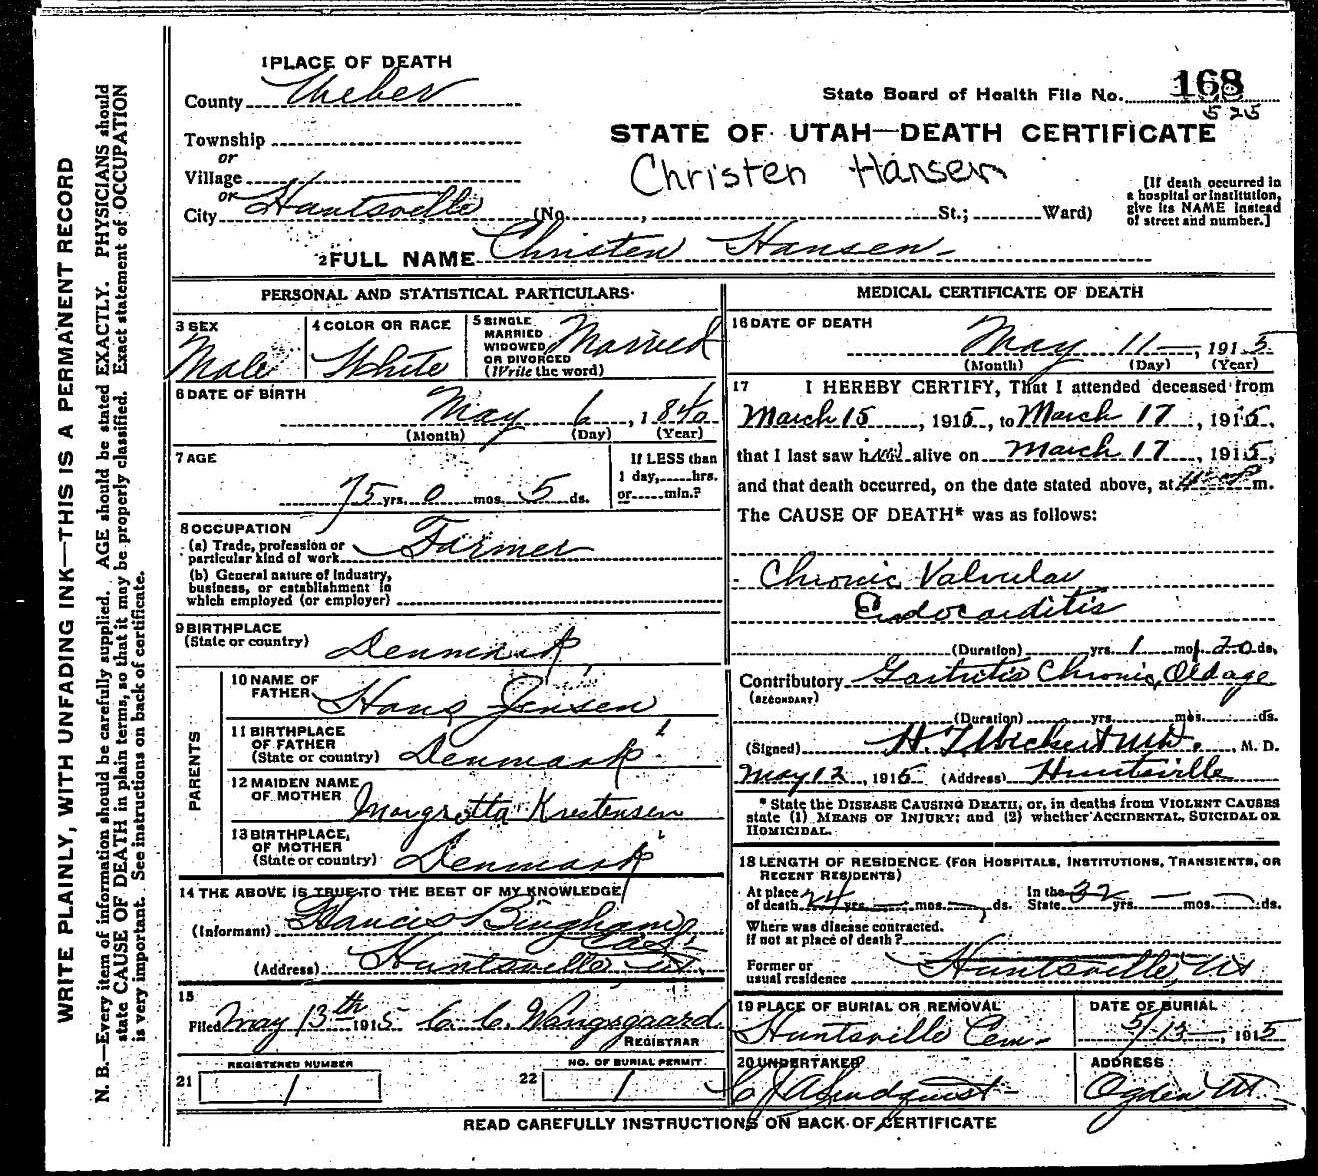 1 PLACE OF DEATH
County Weber
State Board of Health File No. 168
525
Township
or
Village
or
City Huntsville (No. , St.; Ward)
STATE OF UTAH—DEATH CERTIFICATE
Christen Hansen
[If death occurred in
a hospital or institution,
give its NAME instead
of street and number.]
2 FULL NAME Christen Hansen
PERSONAL AND STATISTICAL PARTICULARS
3 SEX
Male
4 COLOR OR RACE
White
5 SINGLE
MARRIED
WIDOWED
OR DIVORCED
(Write the word)
Married
6 DATE OF BIRTH
May 6, 1840
(Month) (Day) (Year)
7 AGE
75 yrs. 0 mos. 5 ds.
If LESS than
1 day, hrs.
or min.?
8 OCCUPATION
(a) Trade, profession or
particular kind of work Farmer
(b) General nature of Industry,
business, or establishment in
which employed (or employer)
9 BIRTHPLACE
(State or country) Denmark
PARENTS
10 NAME OF
FATHER Hans Jensen
11 BIRTHPLACE
OF FATHER
(State or country) Denmark
12 MAIDEN NAME
OF MOTHER Margretta Krestensen
13 BIRTHPLACE
OF MOTHER
(State or country) Denmark
14 THE ABOVE IS TRUE TO THE BEST OF MY KNOWLEDGE
(Informant) Francis Bingham
(Address) Huntsville Ut.
15
Filed May 13th 1915 C. C. Wangsgaard
REGISTRAR
REGISTERED NUMBER
21 1
NO. OF BURIAL PERMIT
22 1
MEDICAL CERTIFICATE OF DEATH
16 DATE OF DEATH
May 11, 1915
(Month) (Day) (Year)
17 I HEREBY CERTIFY, That I attended deceased from
March 15, 1915, to March 17, 1915,
that I last saw him alive on March 17, 1915,
and that death occurred, on the date stated above, at m.
The CAUSE OF DEATH* was as follows:
Chronic Valvular
Endocarditis
(Duration) yrs. 1 mos. 20 ds.
Contributory Gastritis Chronic, Old age
(SECONDARY)
(Duration) yrs. mos. ds.
(Signed) M. D.
May 12, 1915 (Address) Huntsville
* State the DISEASE CAUSING DEATH, or, in deaths from VIOLENT CAUSES
state (1) MEANS OF INJURY; and (2) whether ACCIDENTAL, SUICIDAL OR
HOMICIDAL.
18 LENGTH OF RESIDENCE (FOR HOSPITALS, INSTITUTIONS, TRANSIENTS, OR
RECENT RESIDENTS)
At place
of death 24 yrs. — mos. ds.
In the
State 32 yrs. — mos. ds.
Where was disease contracted.
If not at place of death?
Former or
usual residence Huntsville, Ut
19 PLACE OF BURIAL OR REMOVAL
Huntsville Cem.
DATE OF BURIAL
5/13, 1915
20 UNDERTAKER
C J A Lindquist
ADDRESS
Ogden Ut.
READ CAREFULLY INSTRUCTIONS ON BACK OF CERTIFICATE
WRITE PLAINLY, WITH UNFADING INK—THIS IS A PERMANENT RECORD
N. B.—Every item of information should be carefully supplied. AGE should be stated EXACTLY. PHYSICIANS should
state CAUSE OF DEATH in plain terms, so that it may be properly classified. Exact statement of OCCUPATION
is very important. See instructions on back of certificate.